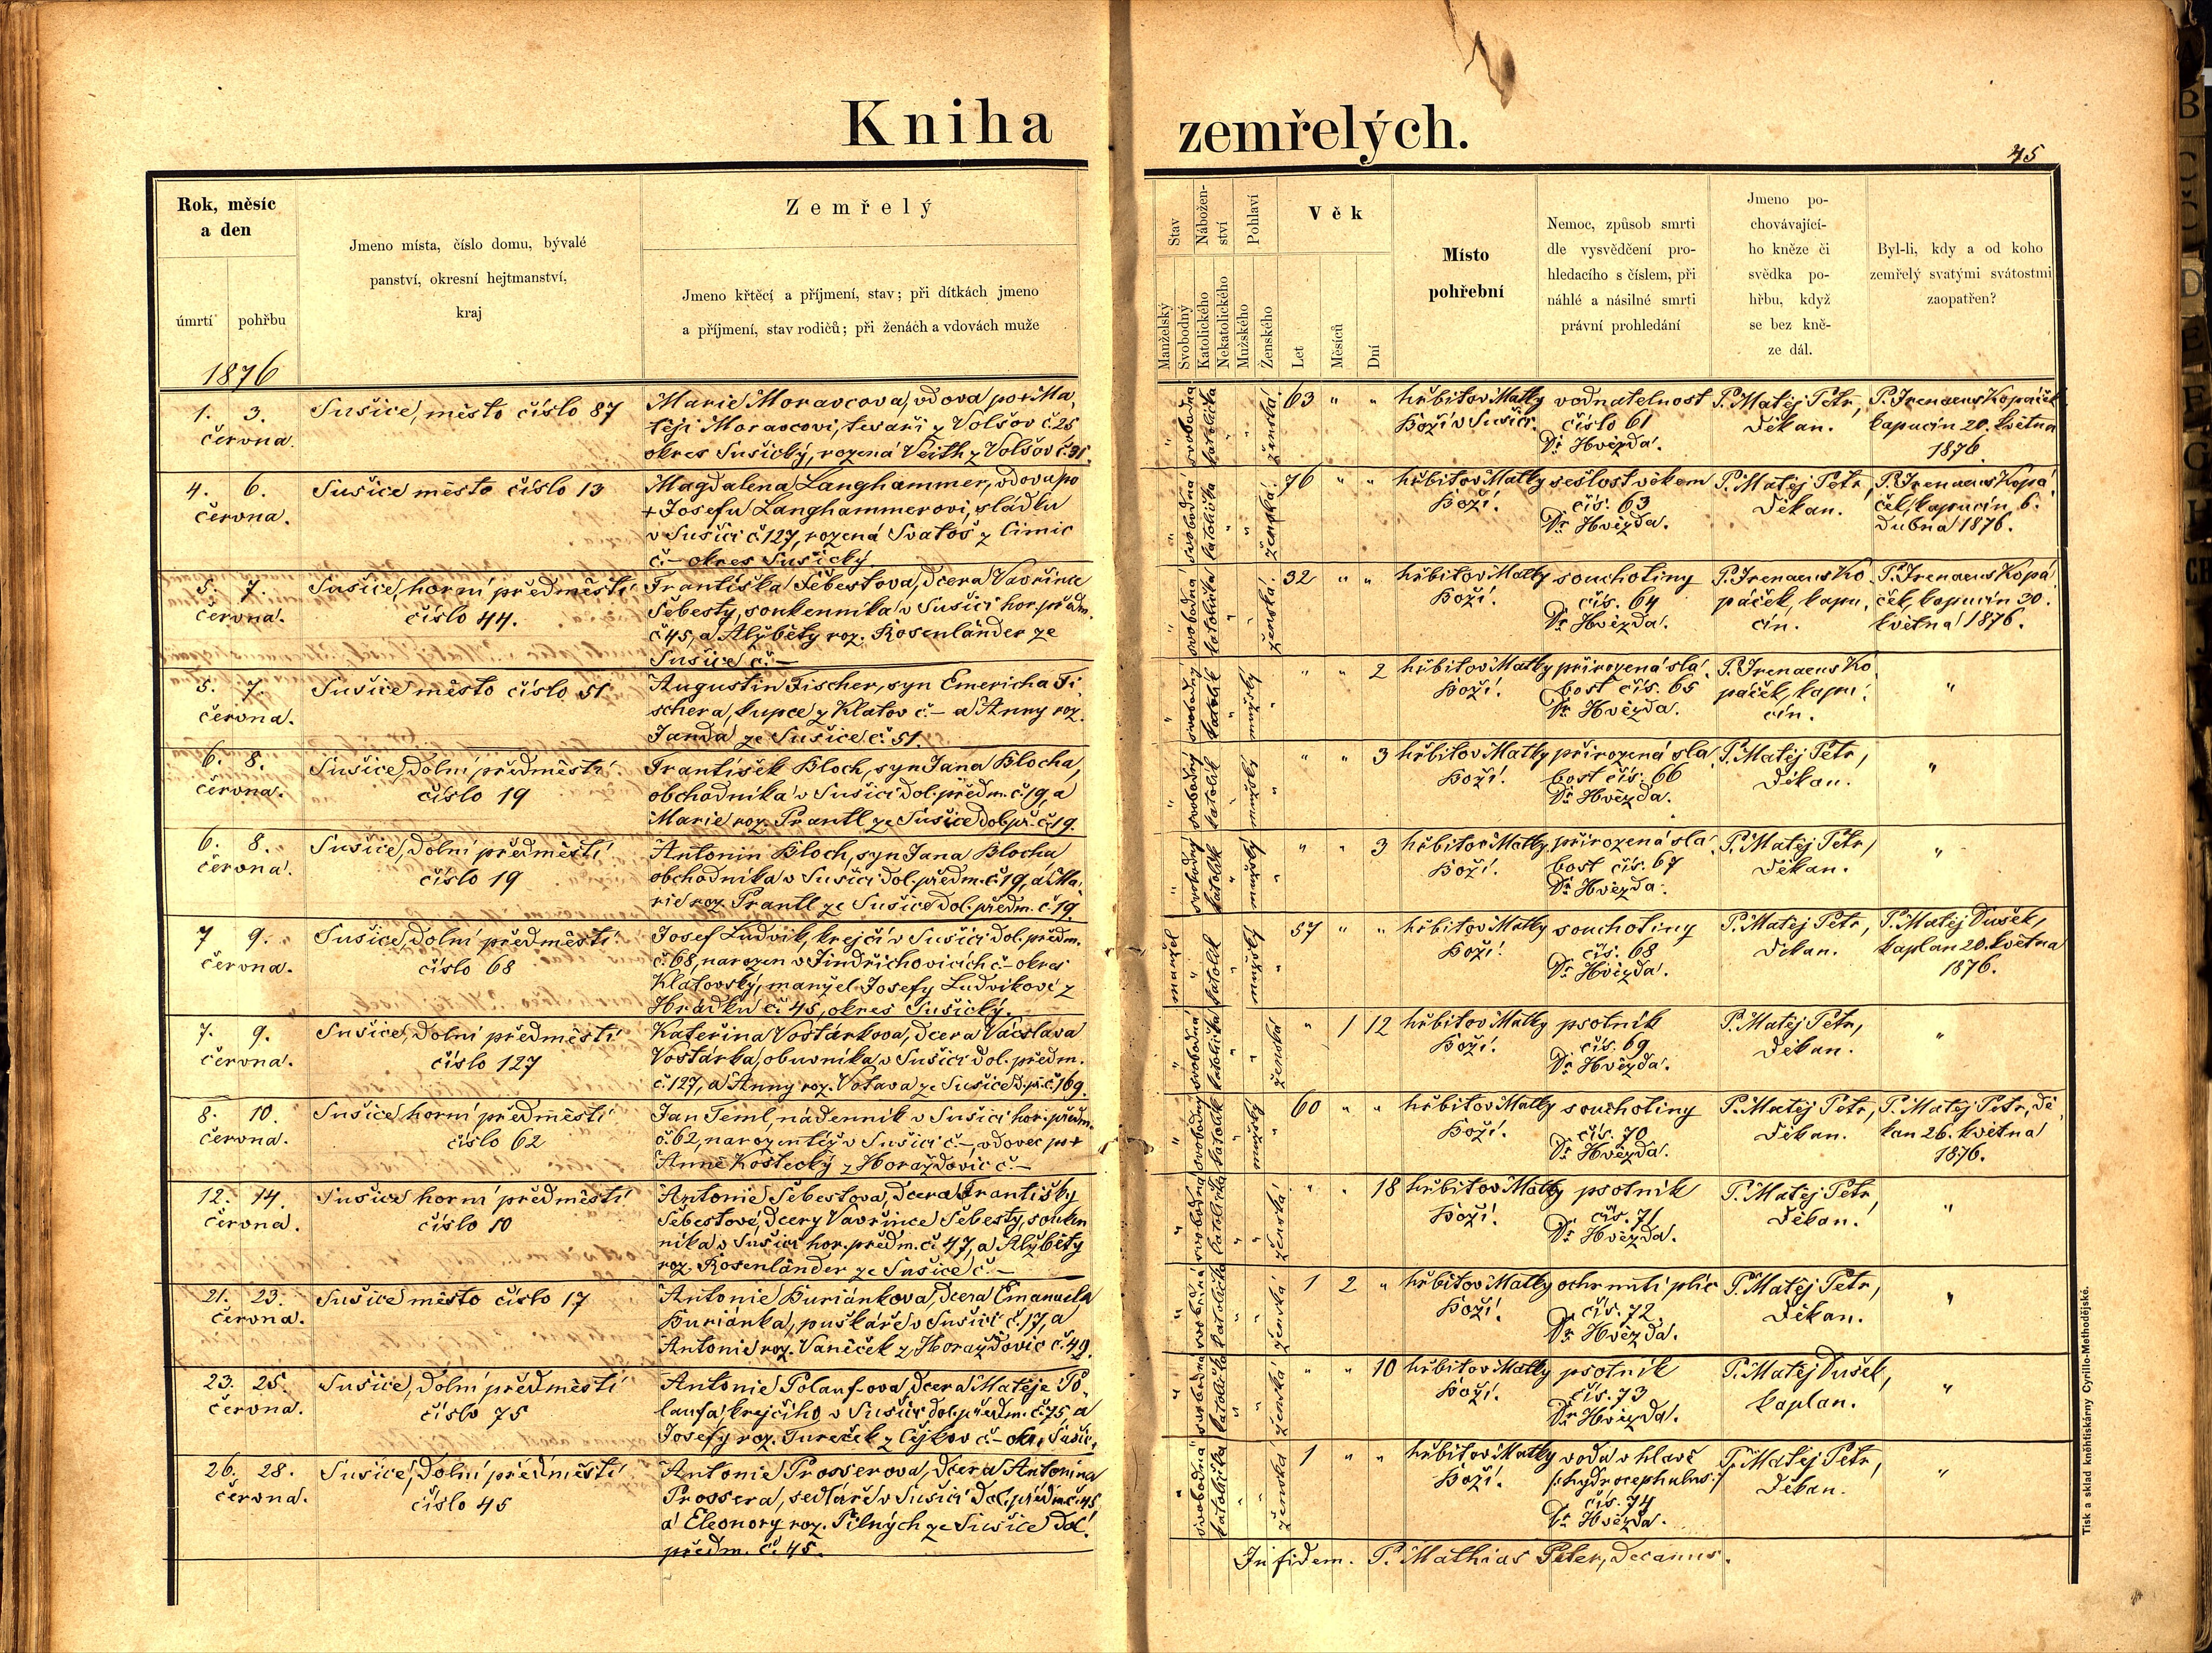 Kniha zemřelých.
45
Rok, měsíc
a den
úmrtí pohřbu
1876
Jmeno místa, číslo domu, bývalé
panství, okresní hejtmanství,
kraj
Zemřelý
Jmeno křtěcí a příjmení, stav; při dítkách jmeno
a příjmení, stav rodičů; při ženách a vdovách muže
Stav
Manželský
Svobodný
Nábožen-
ství
Katolického
Nekatolického
Pohlaví
Mužského
Ženského
Věk
Let
Měsíců
Dní
Místo
pohřební
Nemoc, způsob smrti
dle vysvědčení pro-
hledacího s číslem, při
náhlé a násilné smrti
právní prohledání
Jmeno po-
chovávající-
ho kněze či
svědka po-
hřbu, když
se bez kně-
ze dál.
Byl-li, kdy a od koho
zemřelý svatými svátostmi
zaopatřen?
1. 3.
června.
Sušice, město číslo 87
Marie Moravcova, vdova po + Ma-
těji Moravcovi, tesaři z Volšov č. 25
okres Sušický, rozená Veith z Volšov č. 31.
" svobodná katolička " " ženská.
63 " "
hřbitov Matky
Boží v Sušici.
vodnatelnost
číslo 61
Dr. Hvězda.
P. Matěj Petr,
děkan.
P. Irenaeus Kopáček
kapucín 20. května
1876.
4. 6.
června.
Sušice město číslo 13
Magdalena Langhammer, vdova po
+ Josefu Langhammerovi, sládku
v Sušici č 127, rozená Svatoš z Čimic
č. – okres Sušický
" svobodná katolička " " ženská.
76 " "
hřbitov Matky
Boží.
sešlost věkem
čís. 63
Dr. Hvězda.
P. Matěj Petr,
děkan.
P. Irenaeus Kopá-
ček, kapucín, 6.
dubna 1876.
5. 7.
června.
Sušice, horní předměstí
číslo 44.
Františka Šebestova, dcera Vavřince
Šebesty, soukenníka v Sušici hor. předm.
č 45, a Alžběty roz. Rosenländer ze
Sušice č. –
" svobodná katolička " " ženská.
32 " "
hřbitov Matky
Boží.
souchotiny
čís. 64
Dr. Hvězda.
P. Irenaeus Ko-
páček, kapu-
cín.
P. Irenaeus Kopá-
ček, kapucín 30.
května 1876.
5. 7.
června.
Sušice město číslo 51
Augustin Fischer, syn Emericha Fi-
schera, kupce z Klatov č. – a Anny roz.
Janda ze Sušice č. 51.
" svobodný katolík " mužský "
" " 2
hřbitov Matky
Boží.
přirozená sla-
bost čís. 65
Dr. Hvězda.
P. Irenaeus Ko-
páček, kapu-
cín.
"
6. 8.
června.
Sušice, dolní předměstí
číslo 19
František Bloch, syn Jana Blocha,
obchodníka v Sušici dol. předm. č. 19, a
Marie roz. Prantl ze Sušice dol. př. č. 19.
" svobodný katolík " mužský "
" " 3
hřbitov Matky
Boží.
přirozená sla-
bost čís. 66
Dr. Hvězda.
P. Matěj Petr,
děkan.
"
6. 8.
června.
Sušice, dolní předměstí
číslo 19
Antonín Bloch, syn Jana Blocha
obchodníka v Sušici dol. předm. č. 19, a Ma-
rie roz. Prantl ze Sušice dol. předm. č. 19.
" svobodný katolík " mužský "
" " 3
hřbitov Matky
Boží.
přirozená sla-
bost čís. 67
Dr. Hvězda.
P. Matěj Petr,
děkan.
"
7 9.
června.
Sušice, dolní předměstí
číslo 68
Josef Ludvík, krejčí v Sušici dol. předm.
č. 68, narozen v Jindřichovicích č. – okres
Klatovský, manžel Josefy Ludvíkové z
Hrádku č. 45, okres Sušický.
manžel " katolík " mužský "
57 " "
hřbitov Matky
Boží.
souchotiny
čís. 68
Dr. Hvězda.
P. Matěj Petr,
děkan.
P. Matěj Dušek,
kaplan 20. května
1876.
7. 9.
června.
Sušice, dolní předměstí
číslo 127
Kateřina Vostárkova, dcera Václava
Vostárka, obuvníka v Sušici dol. předm.
č. 127, a Anny roz. Votava ze Sušice d. př. č. 169.
" svobodná katolička " " ženská
" 1 12
hřbitov Matky
Boží.
psotník
čís. 69
Dr. Hvězda.
P. Matěj Petr,
děkan.
"
8. 10.
června.
Sušice horní předměstí
číslo 62
Jan Teml, nádenník v Sušici hor. předm.
č. 62, narozen též v Sušici č. –, vdovec po +
Anně Kostecky z Horažďovic č. –
" svobodný katolík " mužský "
60 " "
hřbitov Matky
Boží.
souchotiny
čís. 70
Dr. Hvězda.
P. Matěj Petr,
děkan.
P. Matěj Petr, dě-
kan 26. května
1876.
12. 14.
června.
Sušice horní předměstí
číslo 10
Antonie Šebestova, dcera Františky
Šebestové, dcery Vavřince Šebesty, souken-
níka v Sušici hor. předm. č. 47, a Alžběty
roz. Rosenländer ze Sušice č. –
" svobodná katolička " " ženská.
" " 18
hřbitov Matky
Boží.
psotník
čís. 71
Dr. Hvězda.
P. Matěj Petr,
děkan.
"
21. 23.
června.
Sušice město číslo 17
Antonie Buriánkova, dcera Emanuela
Buriánka, puškaře v Sušici č. 17, a
Antonie roz. Vaněček z Horažďovic č. 49.
" svobodná katolička " " ženská
1 2 "
hřbitov Matky
Boží.
ochrnutí plic
čís. 72
Dr. Hvězda.
P. Matěj Petr,
děkan.
"
23. 25.
června.
Sušice, dolní předměstí
číslo 75
Antonie Polauf-ova, dcera Matěje Po-
laufa, krejčího v Sušici dol. předm. č. 75, a
Josefy roz. Tureček z Čejkov č. – okr. Sušic.
" svobodná katolička " " ženská
" " 10
hřbitov Matky
Boží.
psotník
čís. 73
Dr. Hvězda.
P. Matěj Dušek,
kaplan.
"
26. 28.
června.
Sušice, dolní předměstí
číslo 45
Antonie Prosserova, dcera Antonína
Prossera, sedláře v Sušici dol. předm. č. 45
a Eleonory roz. Pilných ze Sušice dol.
předm. č. 45.
" svobodná katolička " " ženská
1 " "
hřbitov Matky
Boží.
voda v hlavě
/: hydrocephalus :/
čís. 74
Dr. Hvězda.
P. Matěj Petr,
děkan.
"
In fidem. P. Mathias Peter, decanus.
Tisk a sklad kněhtiskárny Cyrillo-Methodějské.